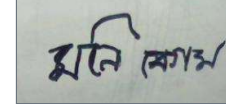 মনি বেগম